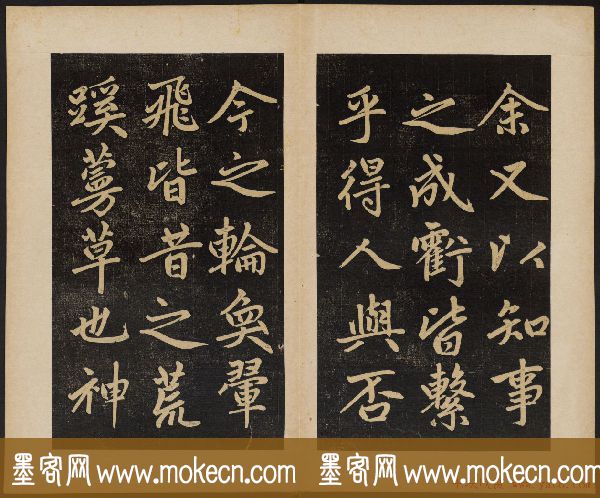 余又以知事
之成虧皆繫
乎得人與否
今之輪奐翬
飛皆昔之荒
蹊蔓草也神
墨客网www.mokecn.com
墨客网www.mokecn.com